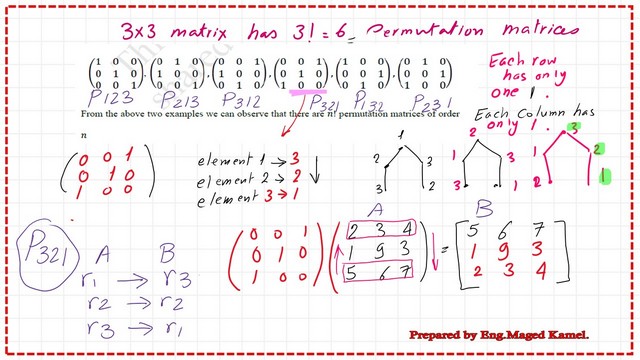 3x3 matrix has 3! = 6 Permutation matrices
1 0 0 0 1 0 1 0 0 0 0 1 0 0 1 0 1 0
0 1 0 , 1 0 0 , 0 0 1 , 0 1 0 , 1 0 0 , 0 0 1
0 0 1 0 0 1 0 1 0 1 0 0 0 1 0 1 0 0
P123 P213 P312 P321 P132 P231
Each row
has only
one 1.
From the above two examples we can observe that there are n! permutation matrices of order
n
Each Column has
only 1.
0 0 1
0 1 0
1 0 0
element 1 → 3
element 2 → 2
element 3 → 1
1
2 3
3 2
2
1 3
3 1
3
1 2
2 1
P321
A B
r1 → r3
r2 → r2
r3 → r1
A B
0 0 1 2 3 4 5 6 7
0 1 0 1 9 3 = 1 9 3
1 0 0 5 6 7 2 3 4
Prepared by Eng.Maged Kamel.